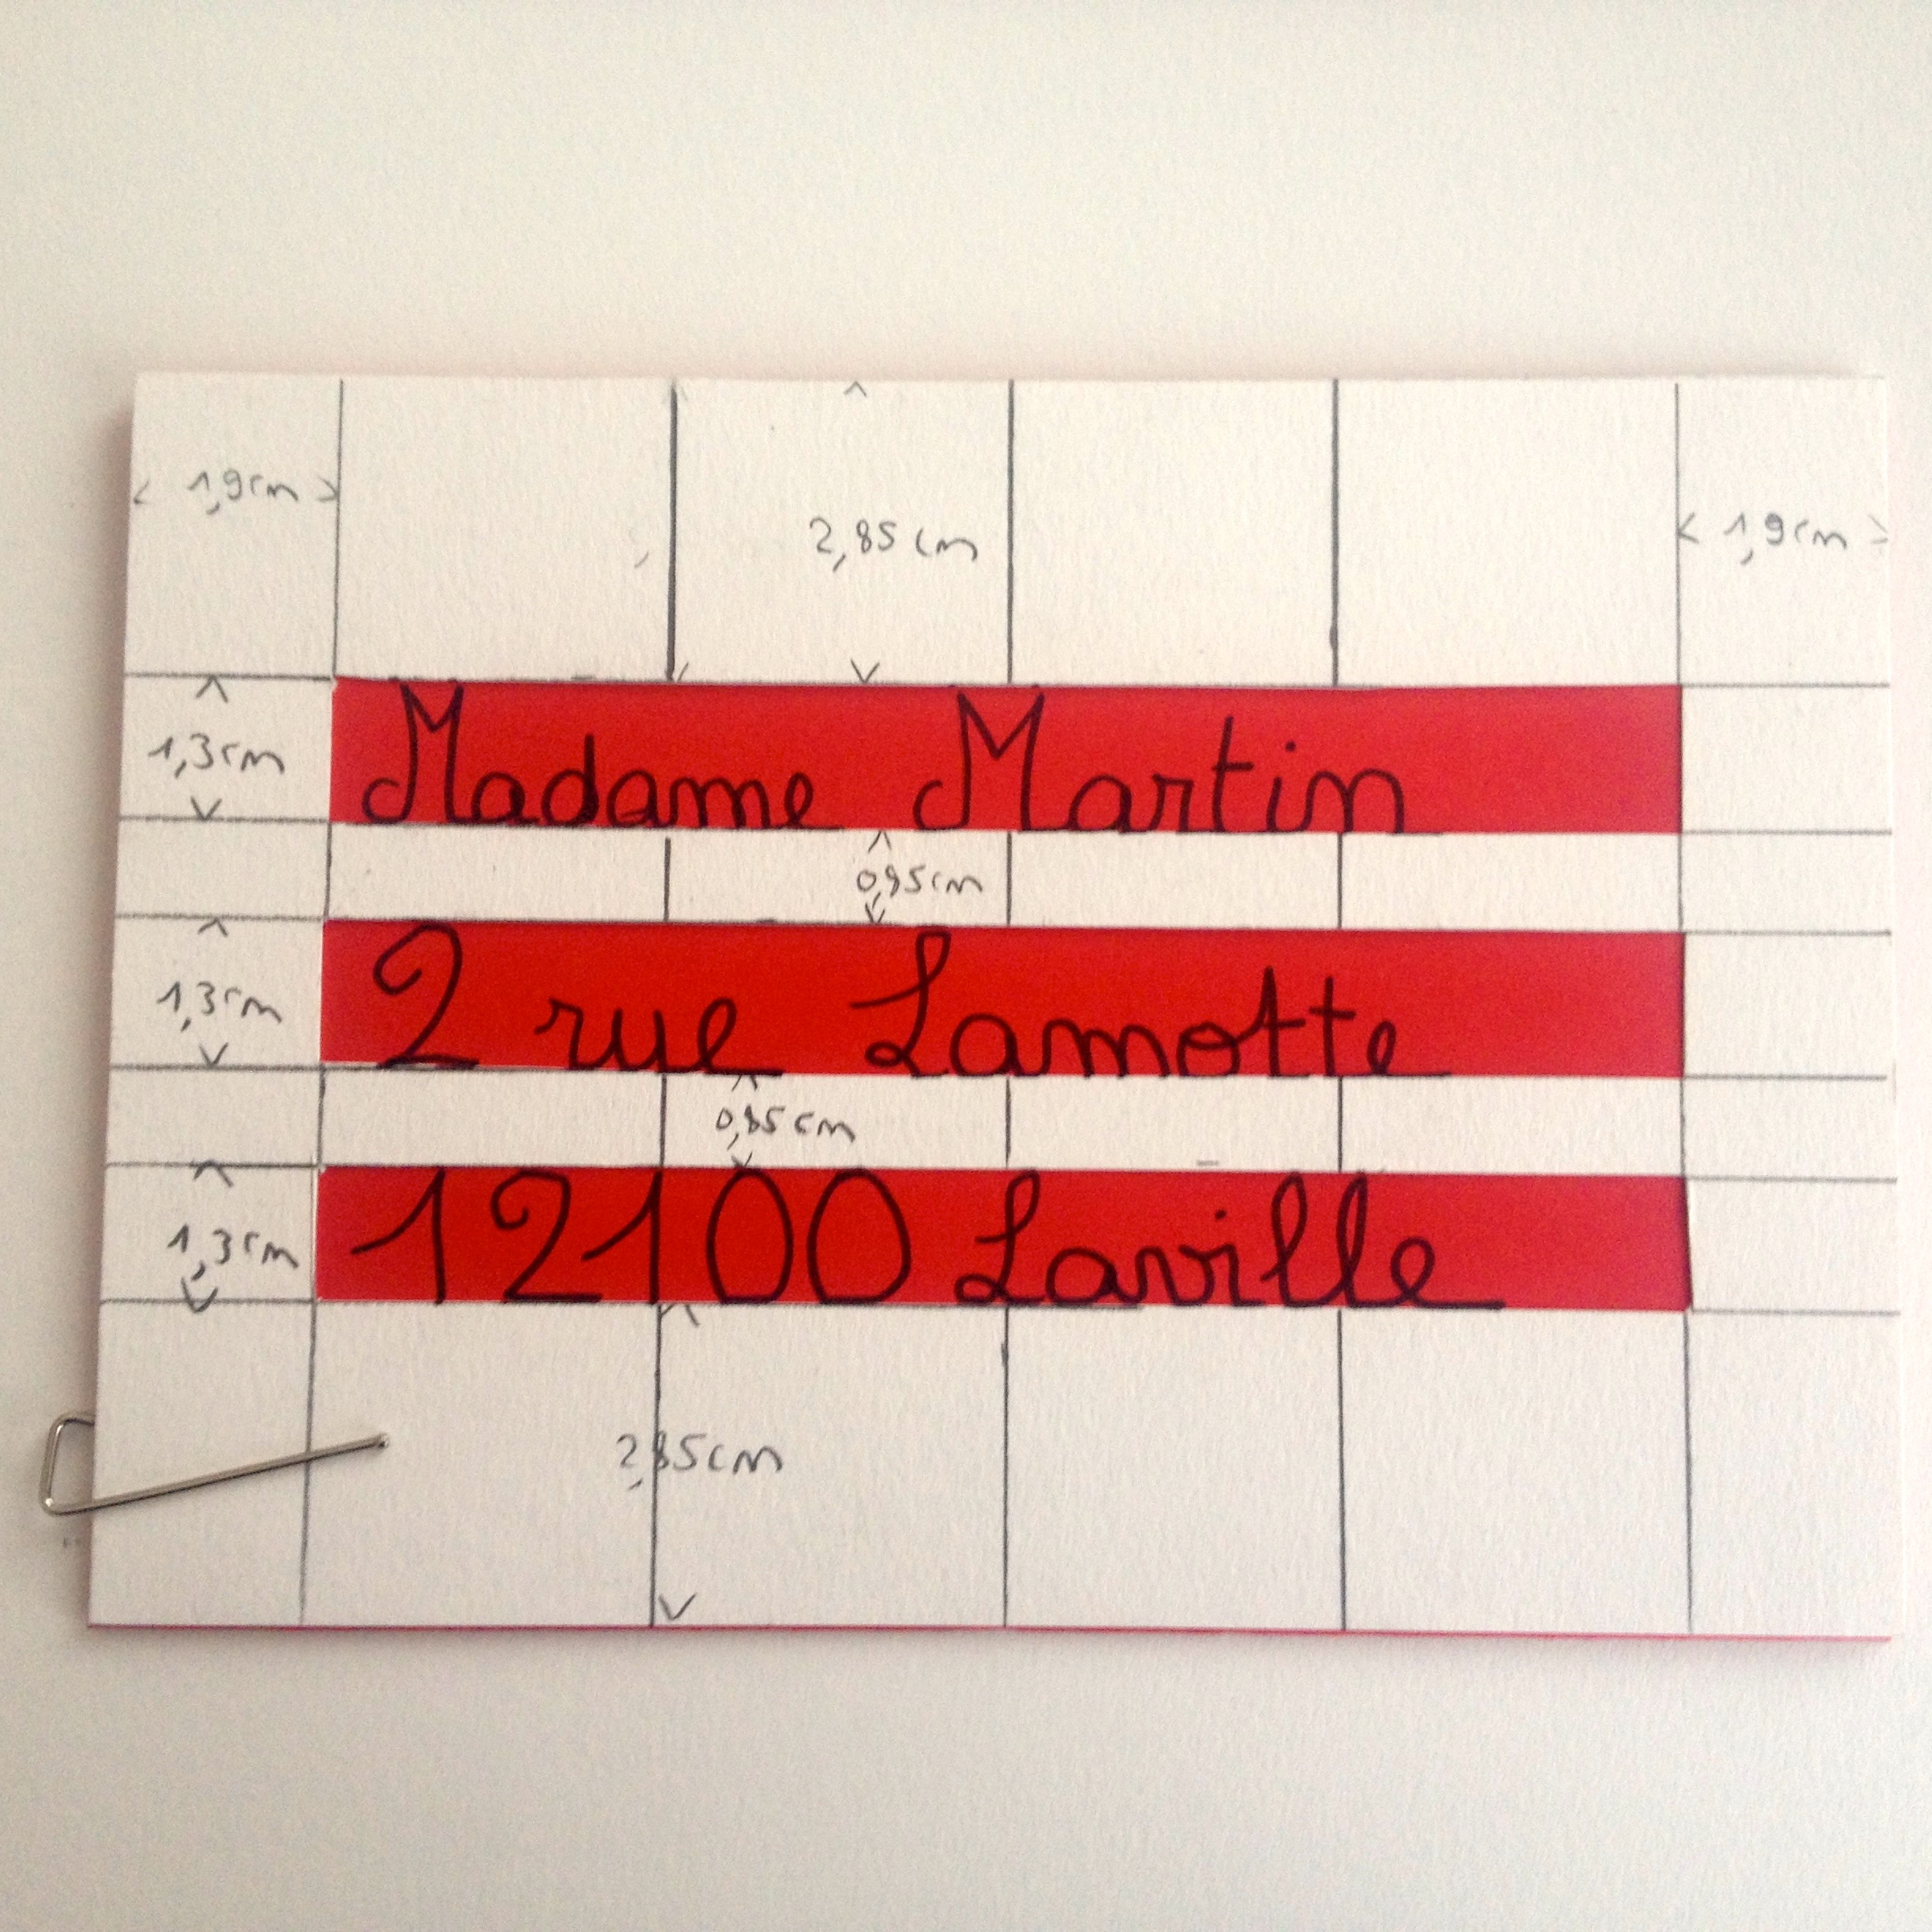 1,9cm
2,85 cm
1,9cm
1,3cm
Madame Martin
0,85cm
1,3cm
2 rue Lamotte
0,85 cm
1,3cm
12100 Laville
2,85cm